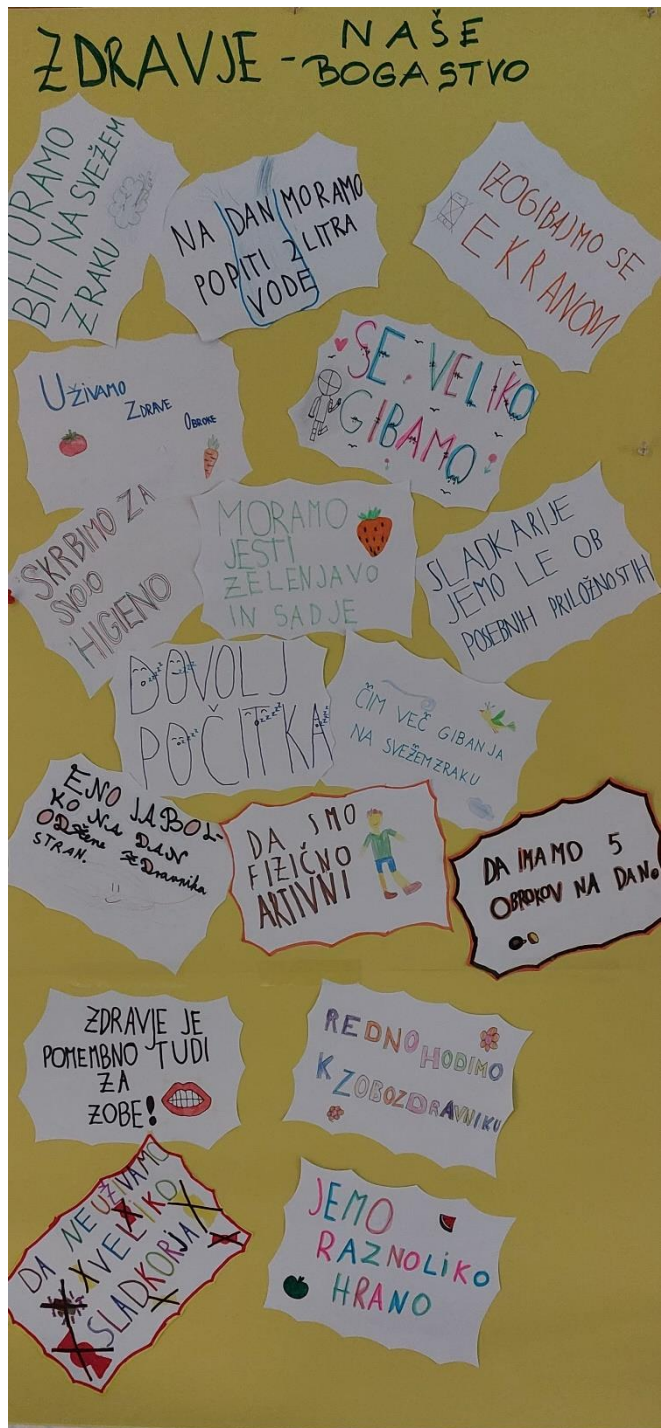 ZDRAVJE - NAŠE
BOGASTVO
MORAMO
BITI NA SVEŽEM
ZRAKU
NA DAN MORAMO
POPITI 2 LITRA
VODE
IZOGIBAJMO SE
EKRANOM
UŽIVAMO
ZDRAVE
OBROKE
SE VELIKO
GIBAMO
SKRBIMO ZA
SVOJO
HIGIENO
MORAMO
JESTI
ZELENJAVO
IN SADJE
SLADKARIJE
JEMO LE OB
POSEBNIH PRILOŽNOSTIH
DOVOLJ
POČITKA
ČIM VEČ GIBANJA
NA SVEŽEM ZRAKU
ENO JABOL-
KO NA DAN
ODžene zdravnika
STRAN.
DA SMO
FIZIČNO
ARTIVNI
DA IMAMO 5
OBROKOV NA DAN.
ZDRAVJE JE
POMEMBNO TUDI
ZA
ZOBE!
REDNO HODIMO
K ZOBOZDRAVNIKU
DA NE UŽIVAMO
VELIKO
SLADKORJA!
JEMO
RAZNOLIKO
HRANO